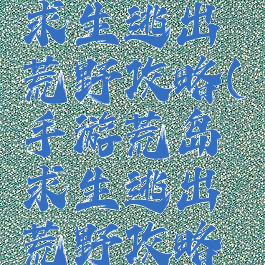 求生逃出
荒野攻略(
手游荒岛
求生逃出
荒野攻略